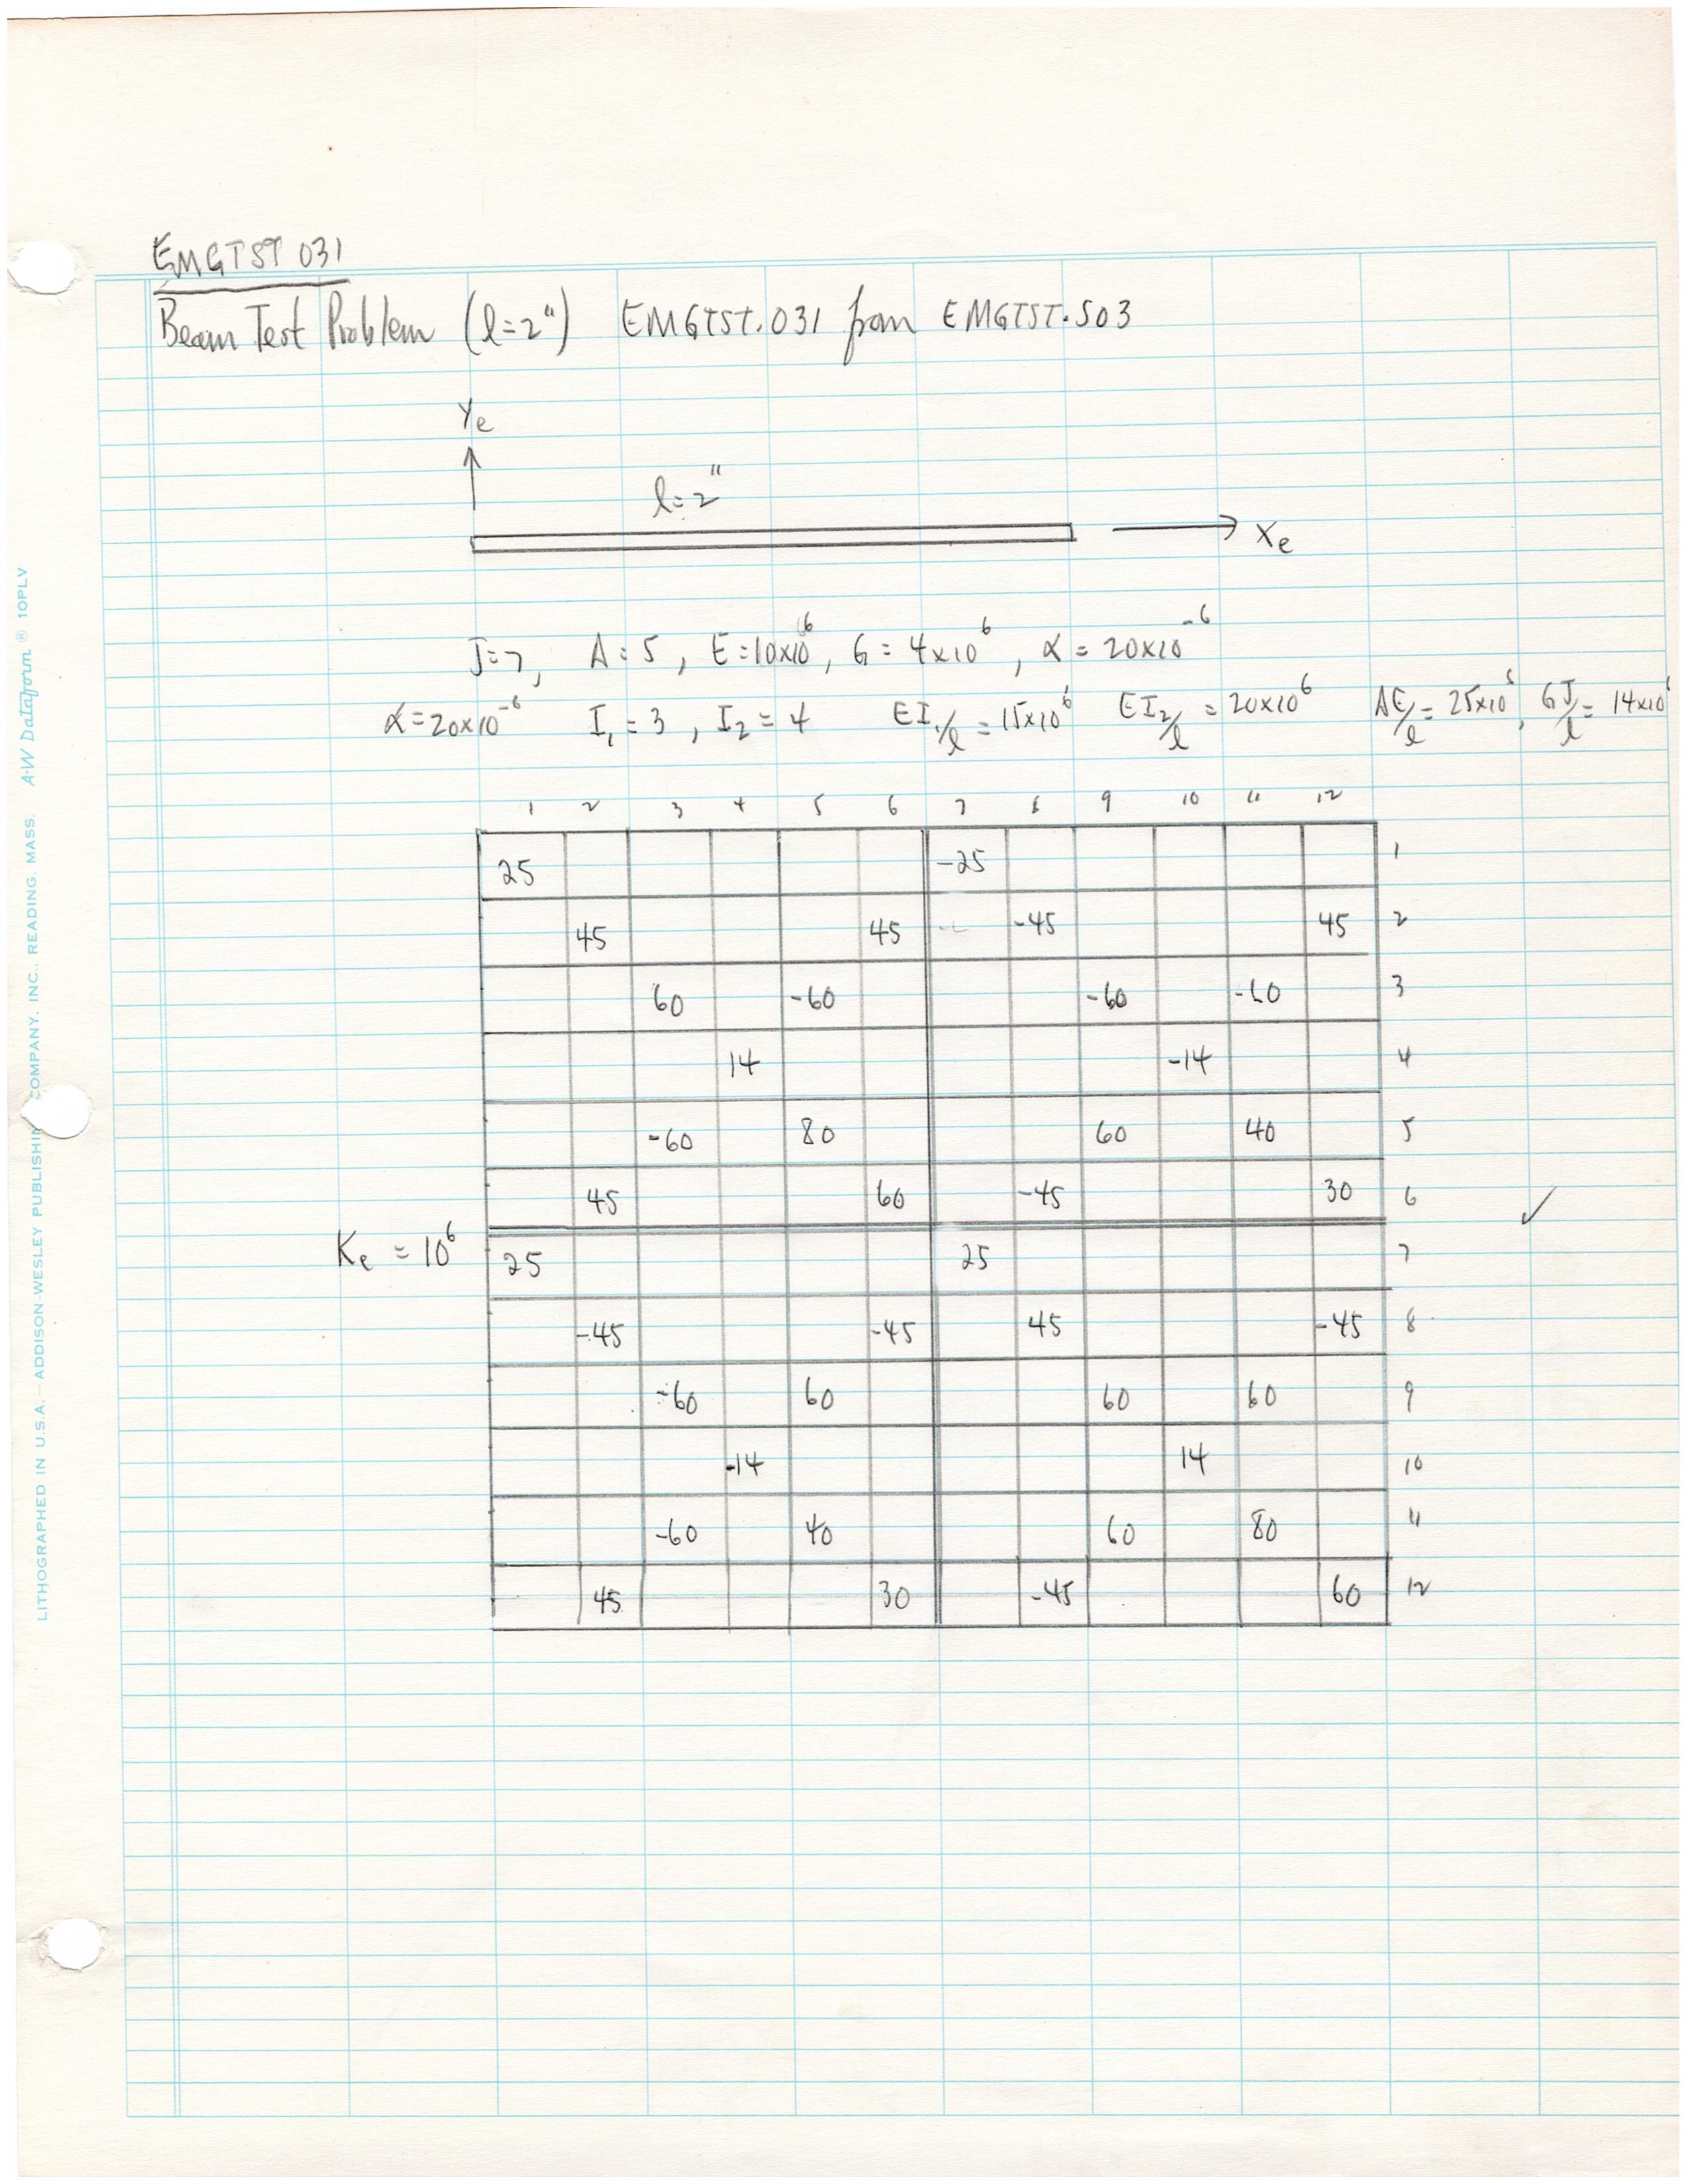 EMGTST 031
Beam Test Problem (l=2") EMGTST.031 from EMGTST.S03
Ye
l=2"
Xe
J=7, A=5, E=10x10^6, G=4x10^6, α=20x10^-6
α=20x10^-6 I1=3, I2=4 EI1/l=15x10^6 EI2/l=20x10^6 AE/l=25x10^6, GJ/l=14x10^6
1 2 3 4 5 6 7 8 9 10 11 12
25 -25 1
45 45 -45 45 2
60 -60 -60 -60 3
14 -14 4
-60 80 60 40 5
45 60 -45 30 6
Ke = 10^6 25 25 7
-45 -45 45 -45 8
-60 60 60 60 9
-14 14 10
-60 40 60 80 11
45 30 -45 60 12
✓
LITHOGRAPHED IN U.S.A. — ADDISON-WESLEY PUBLISHIN COMPANY, INC., READING, MASS. A-W Dataform ® 10PLV